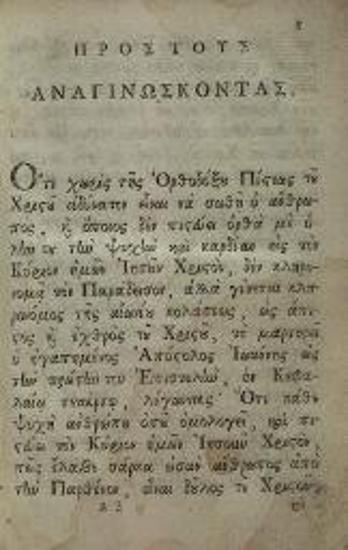 ΠΡΟΣ ΤΟΥΣ
ΑΝΑΓΙΝΩΣΚΟΝΤΑΣ.
Ὅτι χωρὶς τῆς Ὀρθοδόξου Πίστεως τοῦ
Χριστοῦ ἀδύνατον εἶναι νὰ σωθῇ ὁ ἄνθρω-
πος, ἢ ὅποιος δὲν πιστεύει ὀρθὰ μὲ ὅ-
λην τὴν ψυχὴν καὶ καρδίαν εἰς τὸν
Κύριον ἡμῶν Ἰησοῦν Χριστὸν, δὲν κληρο-
νομᾶ τὸν Παράδεισον, ἀλλὰ γίνεται κλη-
ρονόμος τῆς αἰωνίου κολάσεως, ὡς ἄπι-
στος ἢ ἐχθρὸς τοῦ Χριστοῦ, τὸ μαρτυρεῖ
ὁ ἠγαπημένος Ἀπόστολος Ἰωάννης εἰς
τὴν πρώτην του Ἐπιστολὴν, ἐν Κεφα-
λαίῳ, λέγωντας· Ὅτι κάθε
ψυχὴ ἀνθρώπου ὁποῦ ὁμολογεῖ, καὶ πι-
στεύει τὸν Κύριον ἡμῶν Ἰησοῦν Χριστὸν,
πῶς ἔλαβε σάρκα ὡσὰν ἄνθρωπος ἀπὸ
τὴν Παρθένον, εἶναι δοῦλος τοῦ Χριστοῦ